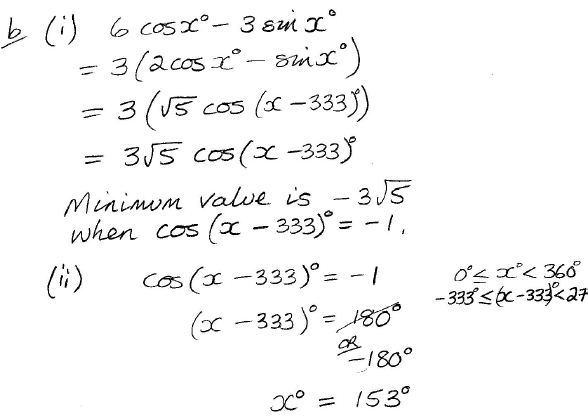 b (i) 6 cos x° - 3 sin x°
= 3(2 cos x° - sin x°)
= 3(√5 cos (x - 333)°)
= 3√5 cos (x - 333)°
Minimum value is - 3√5
when cos (x - 333)° = -1.
(ii) cos (x - 333)° = -1 0° ≤ x° < 360°
-333° ≤ (x - 333)° < 27
(x - 333)° = 180°
OR
-180°
x° = 153°